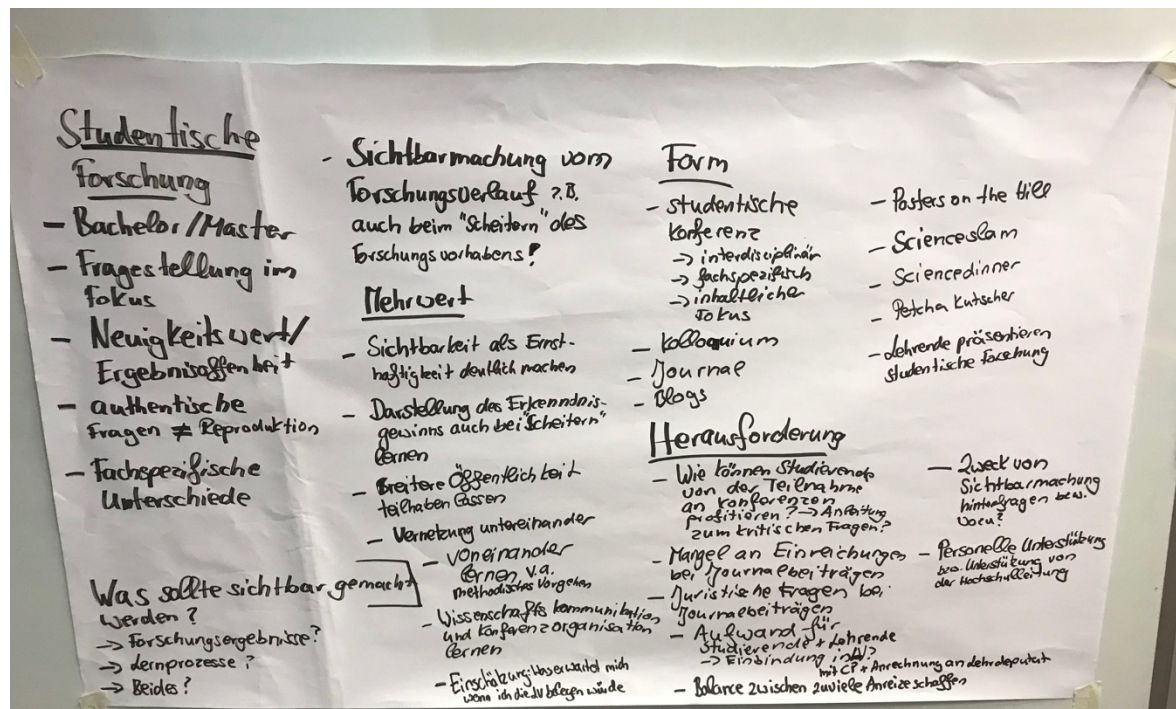 Studentische
Forschung
- Bachelor/Master
- Fragestellung im
Fokus
- Neuigkeitswert/
Ergebnisoffenheit
- authentische
Fragen ≠ Reproduktion
- Fachspezifische
Unterschiede
Was sollte sichtbar gemacht
werden?
-> Forschungsergebnisse?
-> Lernprozesse?
-> Beides?
- Sichtbarmachung vom
Forschungsverlauf z.B.
auch beim "Scheitern" des
Forschungsvorhabens!
Mehrwert
- Sichtbarkeit als Ernst-
haftigkeit deutlich machen
- Darstellung des Erkenndnis-
gewinns auch bei "Scheitern"
lernen
- Breitere Öffentlichkeit
teilhaben lassen
- Vernetzung untereinander
- voneinander
lernen v.a.
methodisches Vorgehen
- Wissenschaftskommunikation
und Konferenzorganisation
lernen
- Einschätzung: Was erwartet mich
wenn ich die LV belegen würde
Form
- studentische
Konferenz
-> interdisciplinär
-> fachspezifisch
-> inhaltlicher
Fokus
- Kolloquium
- Journal
- Blogs
- Posters on the Hill
- Scienceslam
- Sciencedinner
- Petcha Kutscher
- Lehrende präsentieren
studentische Forschung
Herausforderung
- Wie können Studierende
von der Teilnahme
an Konferenzen
profitieren? -> Anleitung
zum kritischen Fragen?
- Mangel an Einreichungen
bei Journalbeiträgen
- Juristische Fragen bei
Journalbeiträgen
- Aufwand für
Studierende + Lehrende
-> Einbindung in LV
mit CP + Anrechnung an Lehrdeputat
- Balance zwischen zuviele Anreize schaffen
- Zweck von
Sichtbarmachung
hinterfragen bzw.
Wozu?
- Personelle Unterstützung
bzw. Unterstützung von
der Hochschulleitung